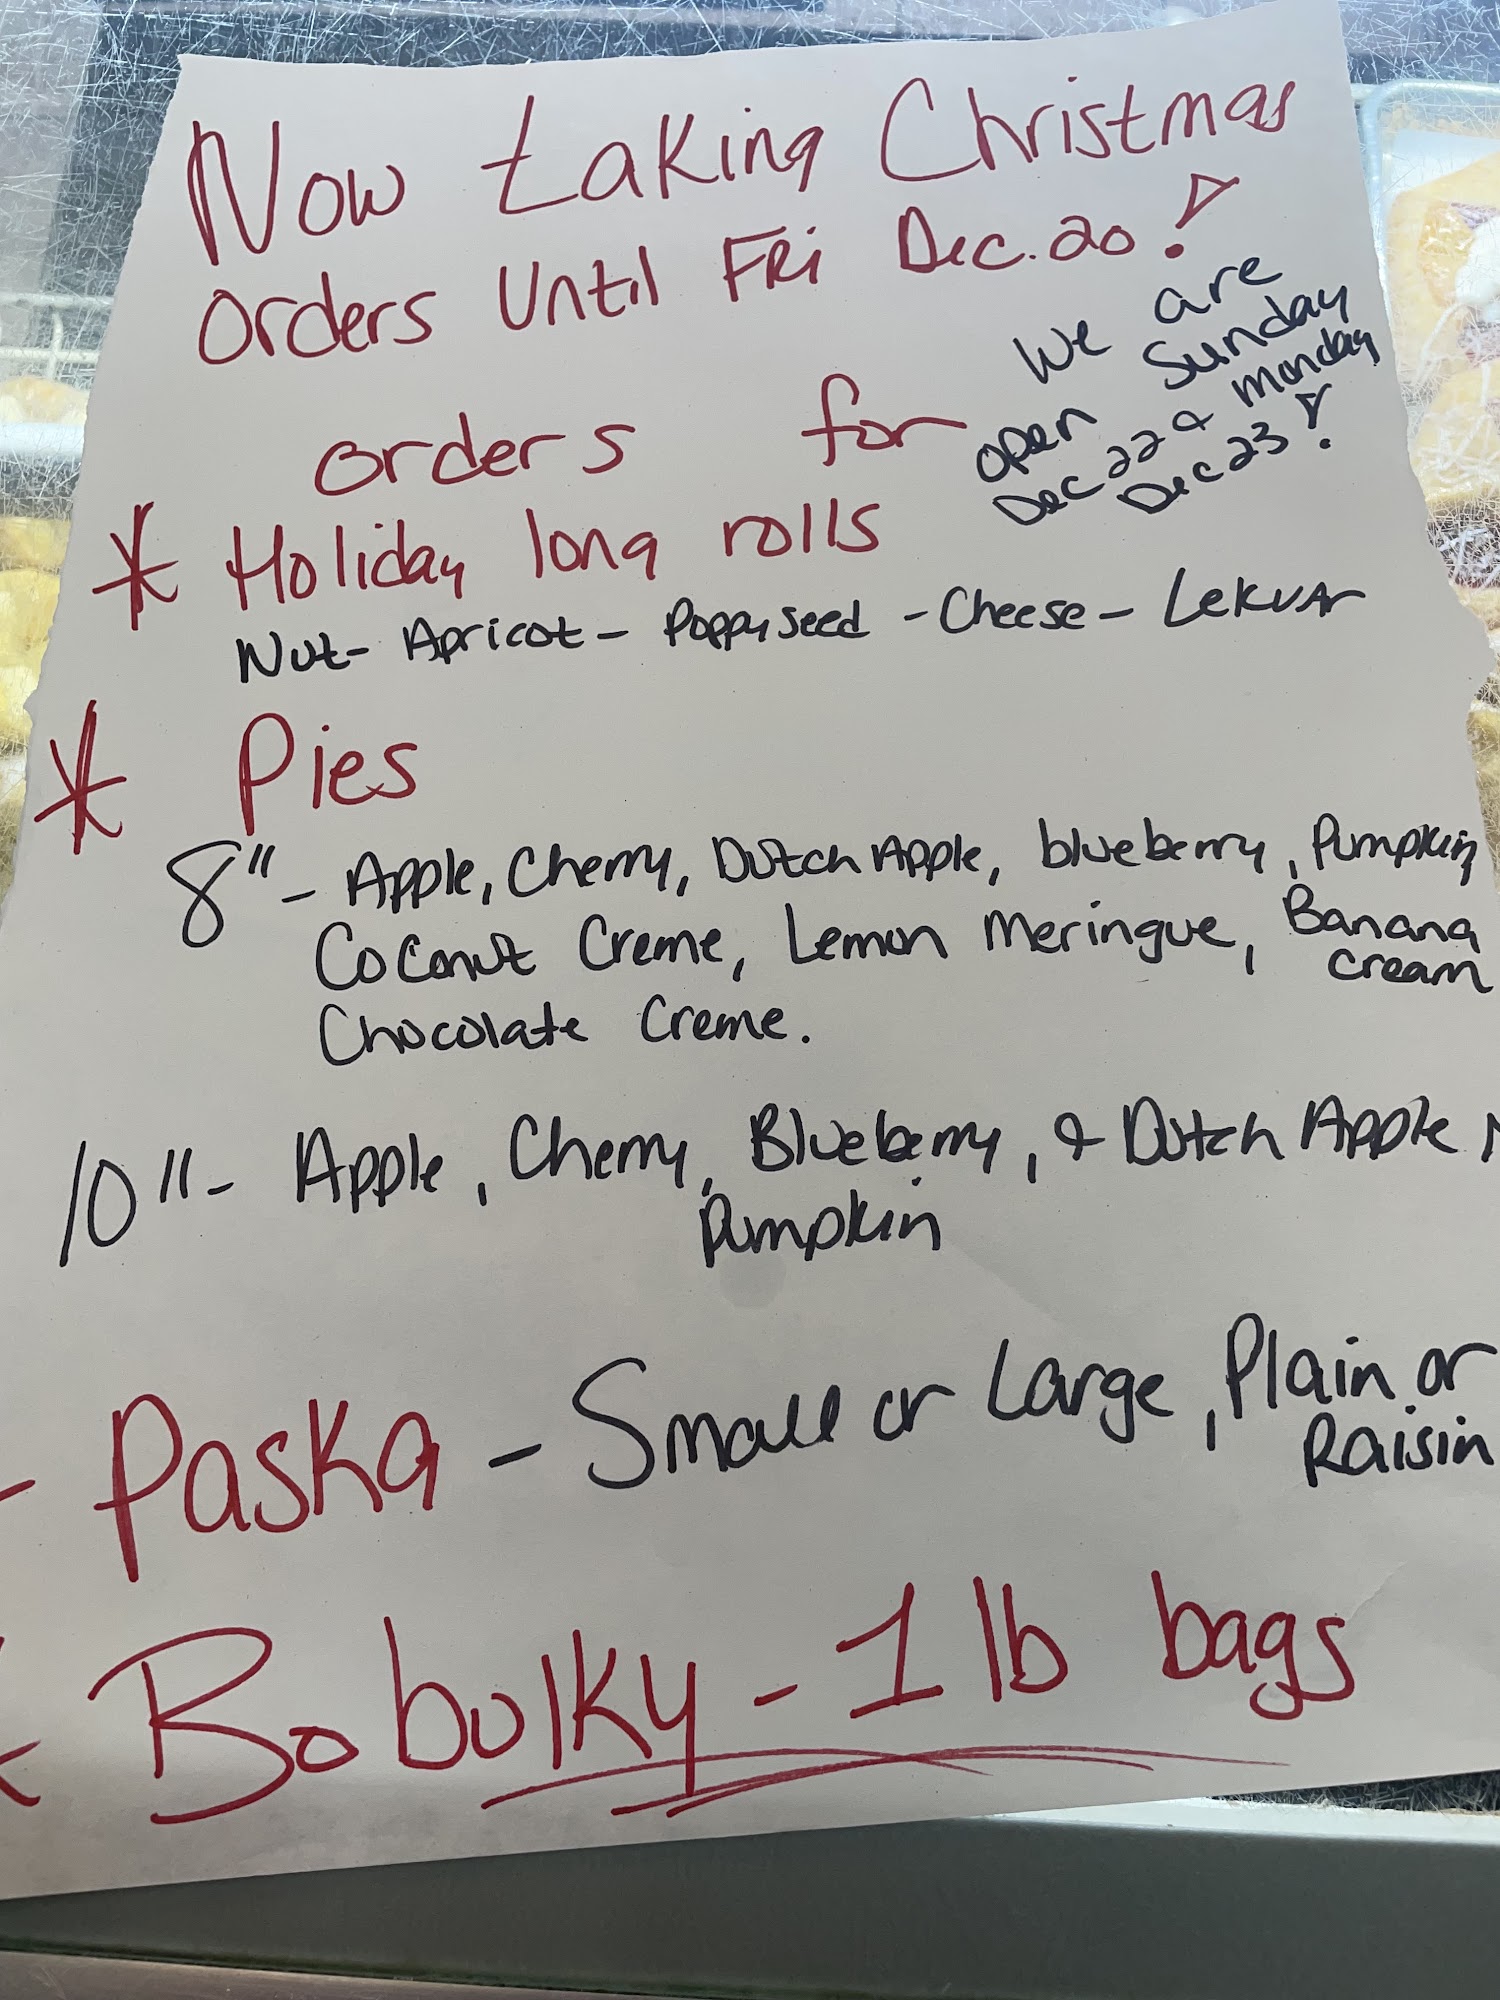 Now taking Christmas
orders until Fri Dec. 20!
We are
open Sunday
Dec 22 & monday
Dec 23!
orders for
* Holiday long rolls
Nut - Apricot - Poppyseed - Cheese - Lekvar
* Pies
8" - Apple, Cherry, Dutch Apple, blueberry, Pumpkin
Coconut Creme, Lemon Meringue, Banana
cream
Chocolate Creme.
10" - Apple, Cherry, Blueberry, & Dutch Apple
Pumpkin
- Paska - Small or Large, Plain or
Raisin
* Bobulky - 1 lb bags